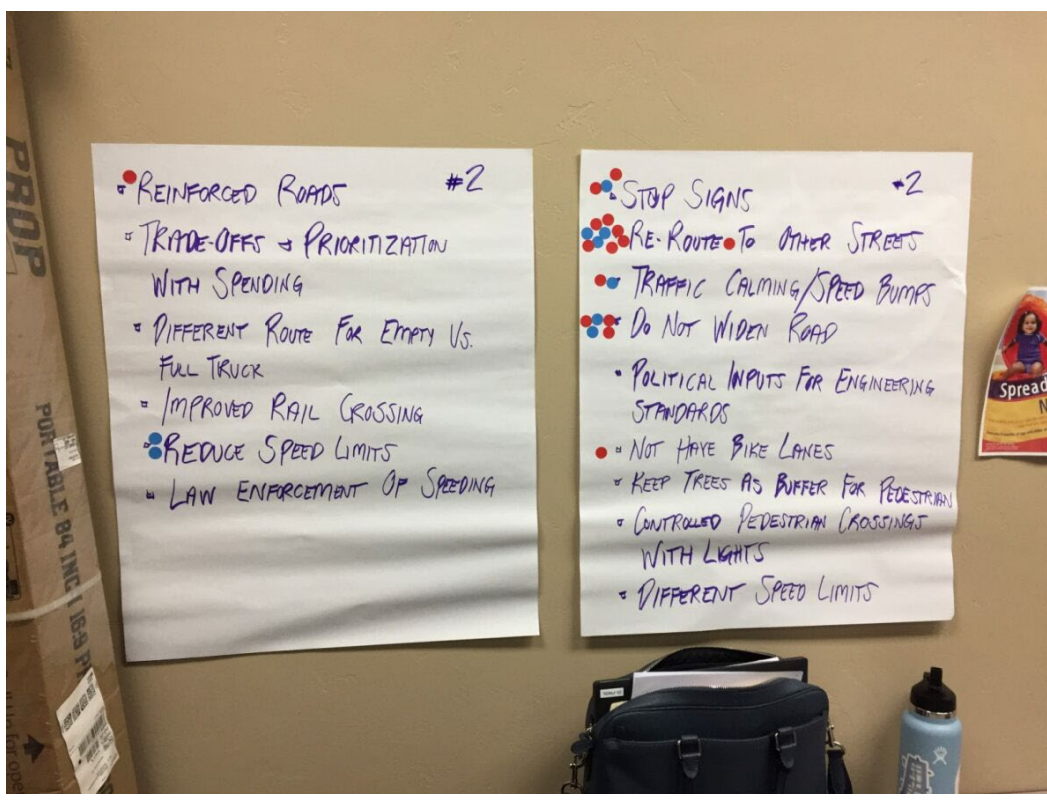 PROP
PORTABLE 84 INCH 16:9 P
for ope
REINFORCED ROADS #2
TRADE-OFFS → PRIORITIZATION
WITH SPENDING
DIFFERENT ROUTE FOR EMPTY VS.
FULL TRUCK
IMPROVED RAIL CROSSING
REDUCE SPEED LIMITS
LAW ENFORCEMENT OF SPEEDING
STOP SIGNS #2
RE-ROUTE TO OTHER STREETS
TRAFFIC CALMING/SPEED BUMPS
DO NOT WIDEN ROAD
POLITICAL INPUTS FOR ENGINEERING
STANDARDS
NOT HAVE BIKE LANES
KEEP TREES AS BUFFER FOR PEDESTRIAN
CONTROLLED PEDESTRIAN CROSSINGS
WITH LIGHTS
DIFFERENT SPEED LIMITS
Spread
N